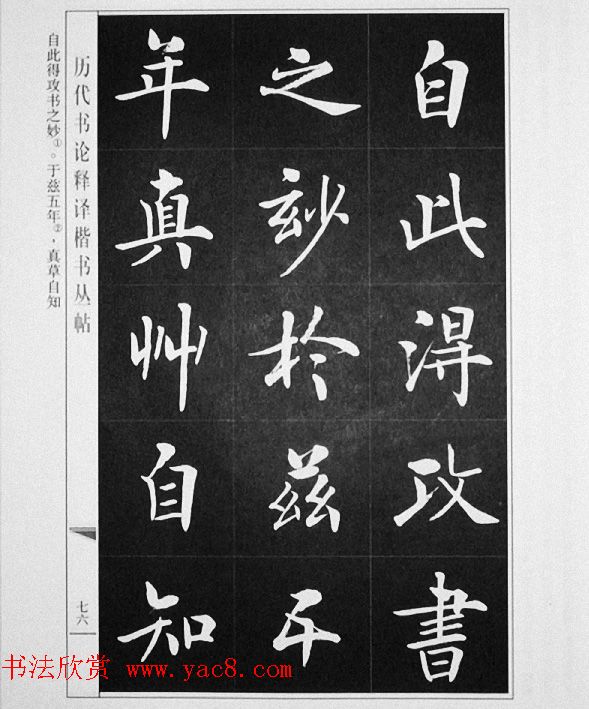 自此得攻書
之玅於茲五
年真艸自知
历代书论释译楷书丛帖
七六
自此得攻书之妙①。于兹五年②，真草自知
书法欣赏 www.yac8.com